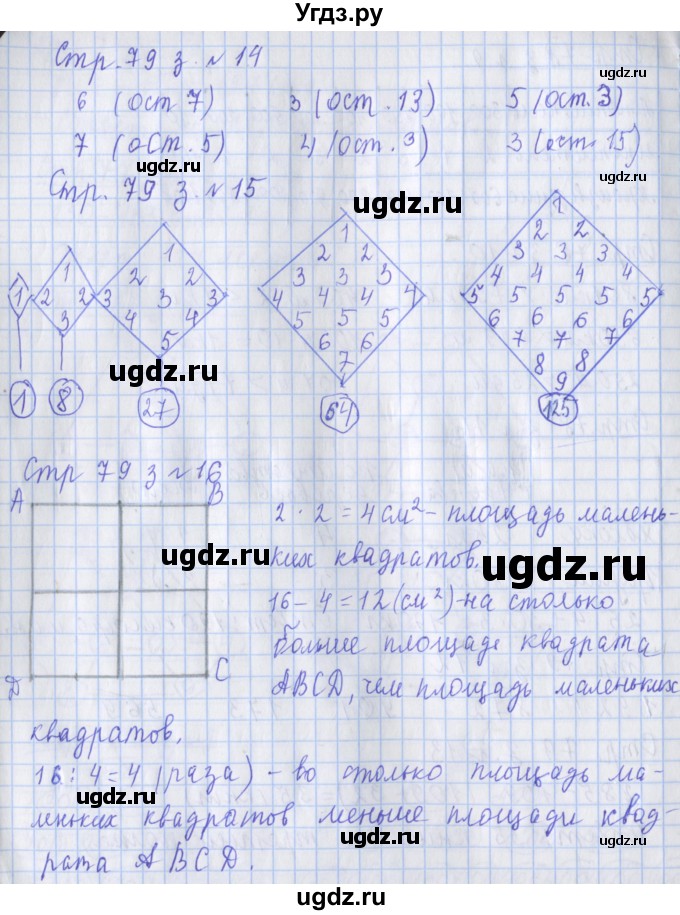 Угдз.ру
Стр. 79 з. №14
6 (ост 7) 3 (ост. 13) 5 (ост. 3)
7 (ост. 5) 4 (ост. 3) 3 (ост. 15)
Стр. 79 з. №15
1
1
2 2
3
1
2 2
3 3 3
4 4
5
1
2 2
3 3 3
4 4 4 4
5 5 5
6 6
7
1
2 2
3 3 3
4 4 4 4
5 5 5 5 5
6 6 6 6
7 7 7
8 8
9
1 8 27 64 125
Стр 79 з №16
A B
D C
2 · 2 = 4 см² - площадь малень-
ких квадратов.
16 - 4 = 12 (см²) - на столько
больше площадь квадрата
ABCD, чем площадь маленьких
квадратов.
16 : 4 = 4 (раза) - во столько площадь ма-
леньких квадратов меньше площади квад-
рата ABCD.
ugdz.ru
ugdz.ru
ugdz.ru
ugdz.ru
ugdz.ru
ugdz.ru
ugdz.ru
ugdz.ru
ugdz.ru
ugdz.ru
ugdz.ru
ugdz.ru
ugdz.ru
ugdz.ru